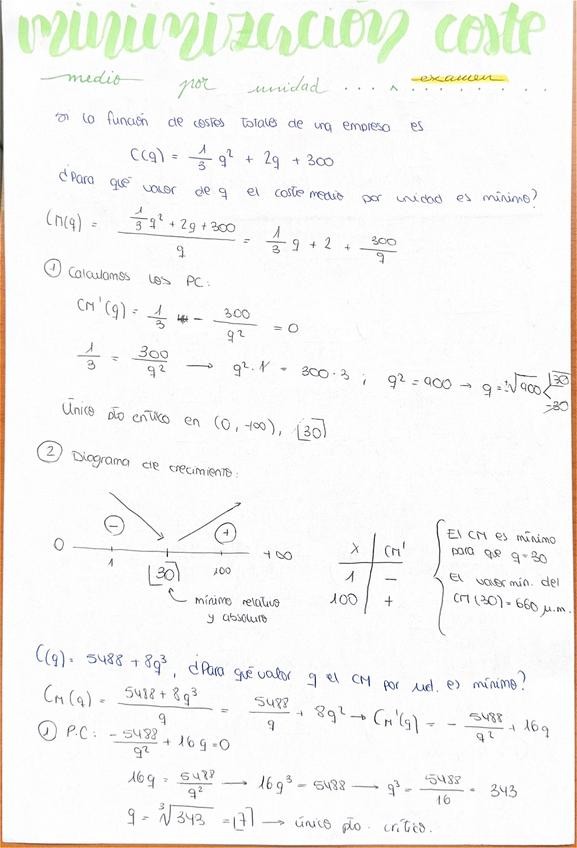 minimización coste
medio por unidad examen
la función de costos totales de una empresa es
C(q) = 1/3 q² + 2q + 300
¿Para qué valor de q el coste medio por unidad es mínimo?
CM(q) = (1/3 q² + 2q + 300)/q = 1/3 q + 2 + 300/q
① Calculamos los PC:
CM'(q) = 1/3 - 300/q² = 0
1/3 = 300/q² → q² · 1 = 300 · 3 ; q² = 900 → q = ²√900 < 30
-30
Único pto crítico en (0, +∞), 30
② Diagrama de crecimiento:
- +
0 1 30 100 +∞
mínimo relativo
y absoluto
X CM'
1 -
100 +
El CM es mínimo
para que q=30
El valor mín. del
CM(30) = 660 u.m.
C(q) = 5488 + 8q³, ¿Para qué valor q el CM por ud. es mínimo?
CM(q) = (5488 + 8q³)/q = 5488/q + 8q² → CM'(q) = - 5488/q² + 16q
① P.C: -5488/q² + 16q = 0
16q = 5488/q² → 16q³ = 5488 → q³ = 5488/16 = 343
q = ³√343 = 7 → único pto. crítico.